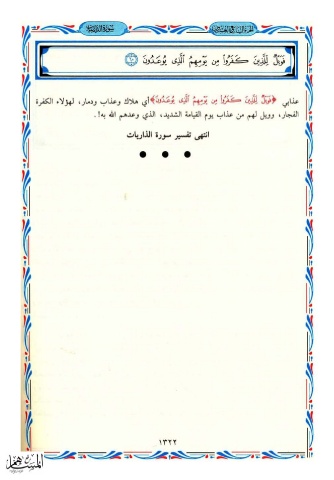 سورة الذاريات
فَوَيْلٌ لِّلَّذِينَ كَفَرُوا۟ مِن يَوْمِهِمُ ٱلَّذِى يُوعَدُونَ ٦٠
عذابي ﴿فَوَيْلٌ لِّلَّذِينَ كَفَرُوا۟ مِن يَوْمِهِمُ ٱلَّذِى يُوعَدُونَ﴾ أي هلاك وعذاب ودمار، لهؤلاء الكفرة
الفجار، وويل لهم من عذاب يوم القيامة الشديد، الذي وعدهم الله به!.
انتهى تفسير سورة الذاريات
١٣٢٢